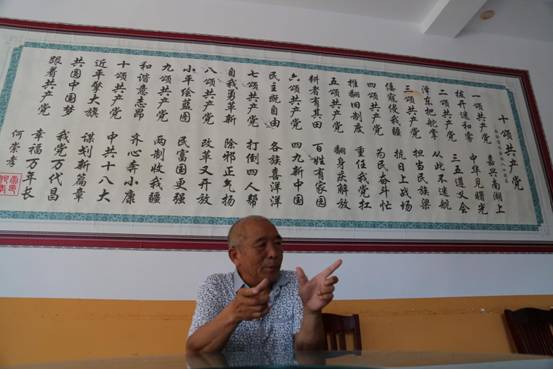 十颂共产党
一颂共产党 嘉兴南湖上
拨开迷和雾 中华见曙光
二颂共产党 三五遵义会
泽东把舵掌 从此不迷航
三颂共产党 担当民族梁
倭寇侵我疆 抗日上战场
四颂共产党 为民奋斗忙
推翻旧制度 重任我党扛
五颂共产党 翻身庆解放
耕者有其田 百姓有家园
六颂共产党 四九新中国
民主既自由 各族喜洋洋
七颂共产党 打倒四人帮
自我勇革新 除邪正气扬
八颂共产党 改革又开放
小平绘蓝图 民富国更强
九颂共产党 两制收我疆
和谐意志昂 齐心奔小康
十颂共产党 中共十八大
近平擎大旗 谋划新篇章
共圆中国梦 我党万代昌
跟着共产党 幸福万年长
何崇孝